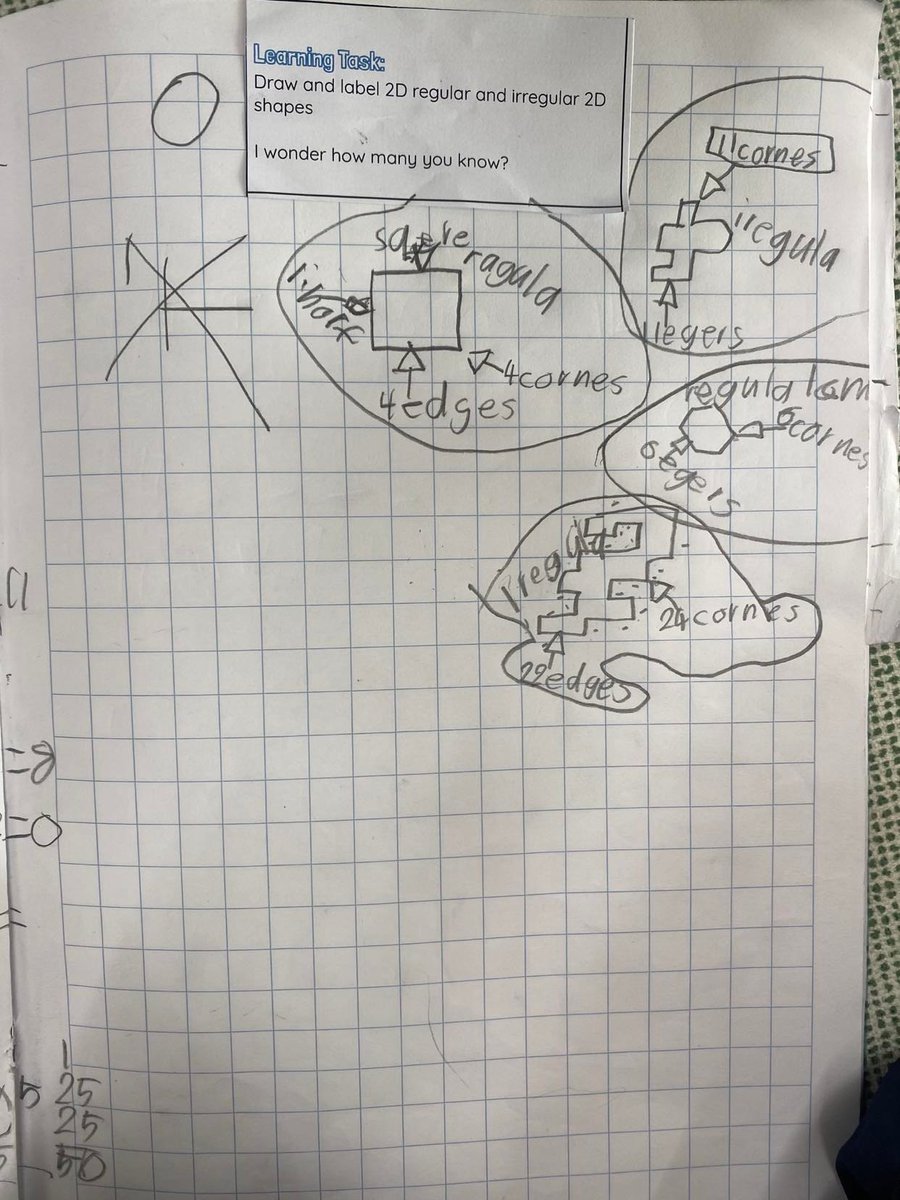 Learning Task:
Draw and label 2D regular and irregular 2D
shapes
I wonder how many you know?
11cornes
irregula
11egers
sqere
ragula
4cornes
4edges
regula
6cornes
6egers
Irregula
24cornes
22edges
=8
=0
1
5 25
25
50